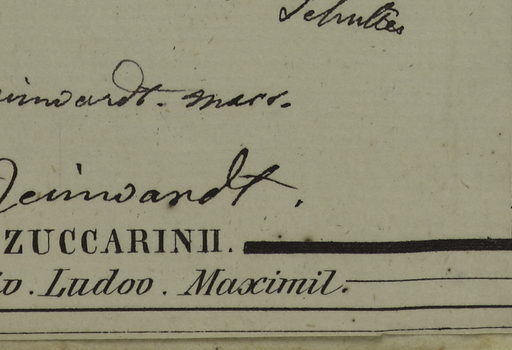 Schultes
einwardt. mscr.
Reinwardt.
ZUCCARINII.
iv. Ludov. Maximil.